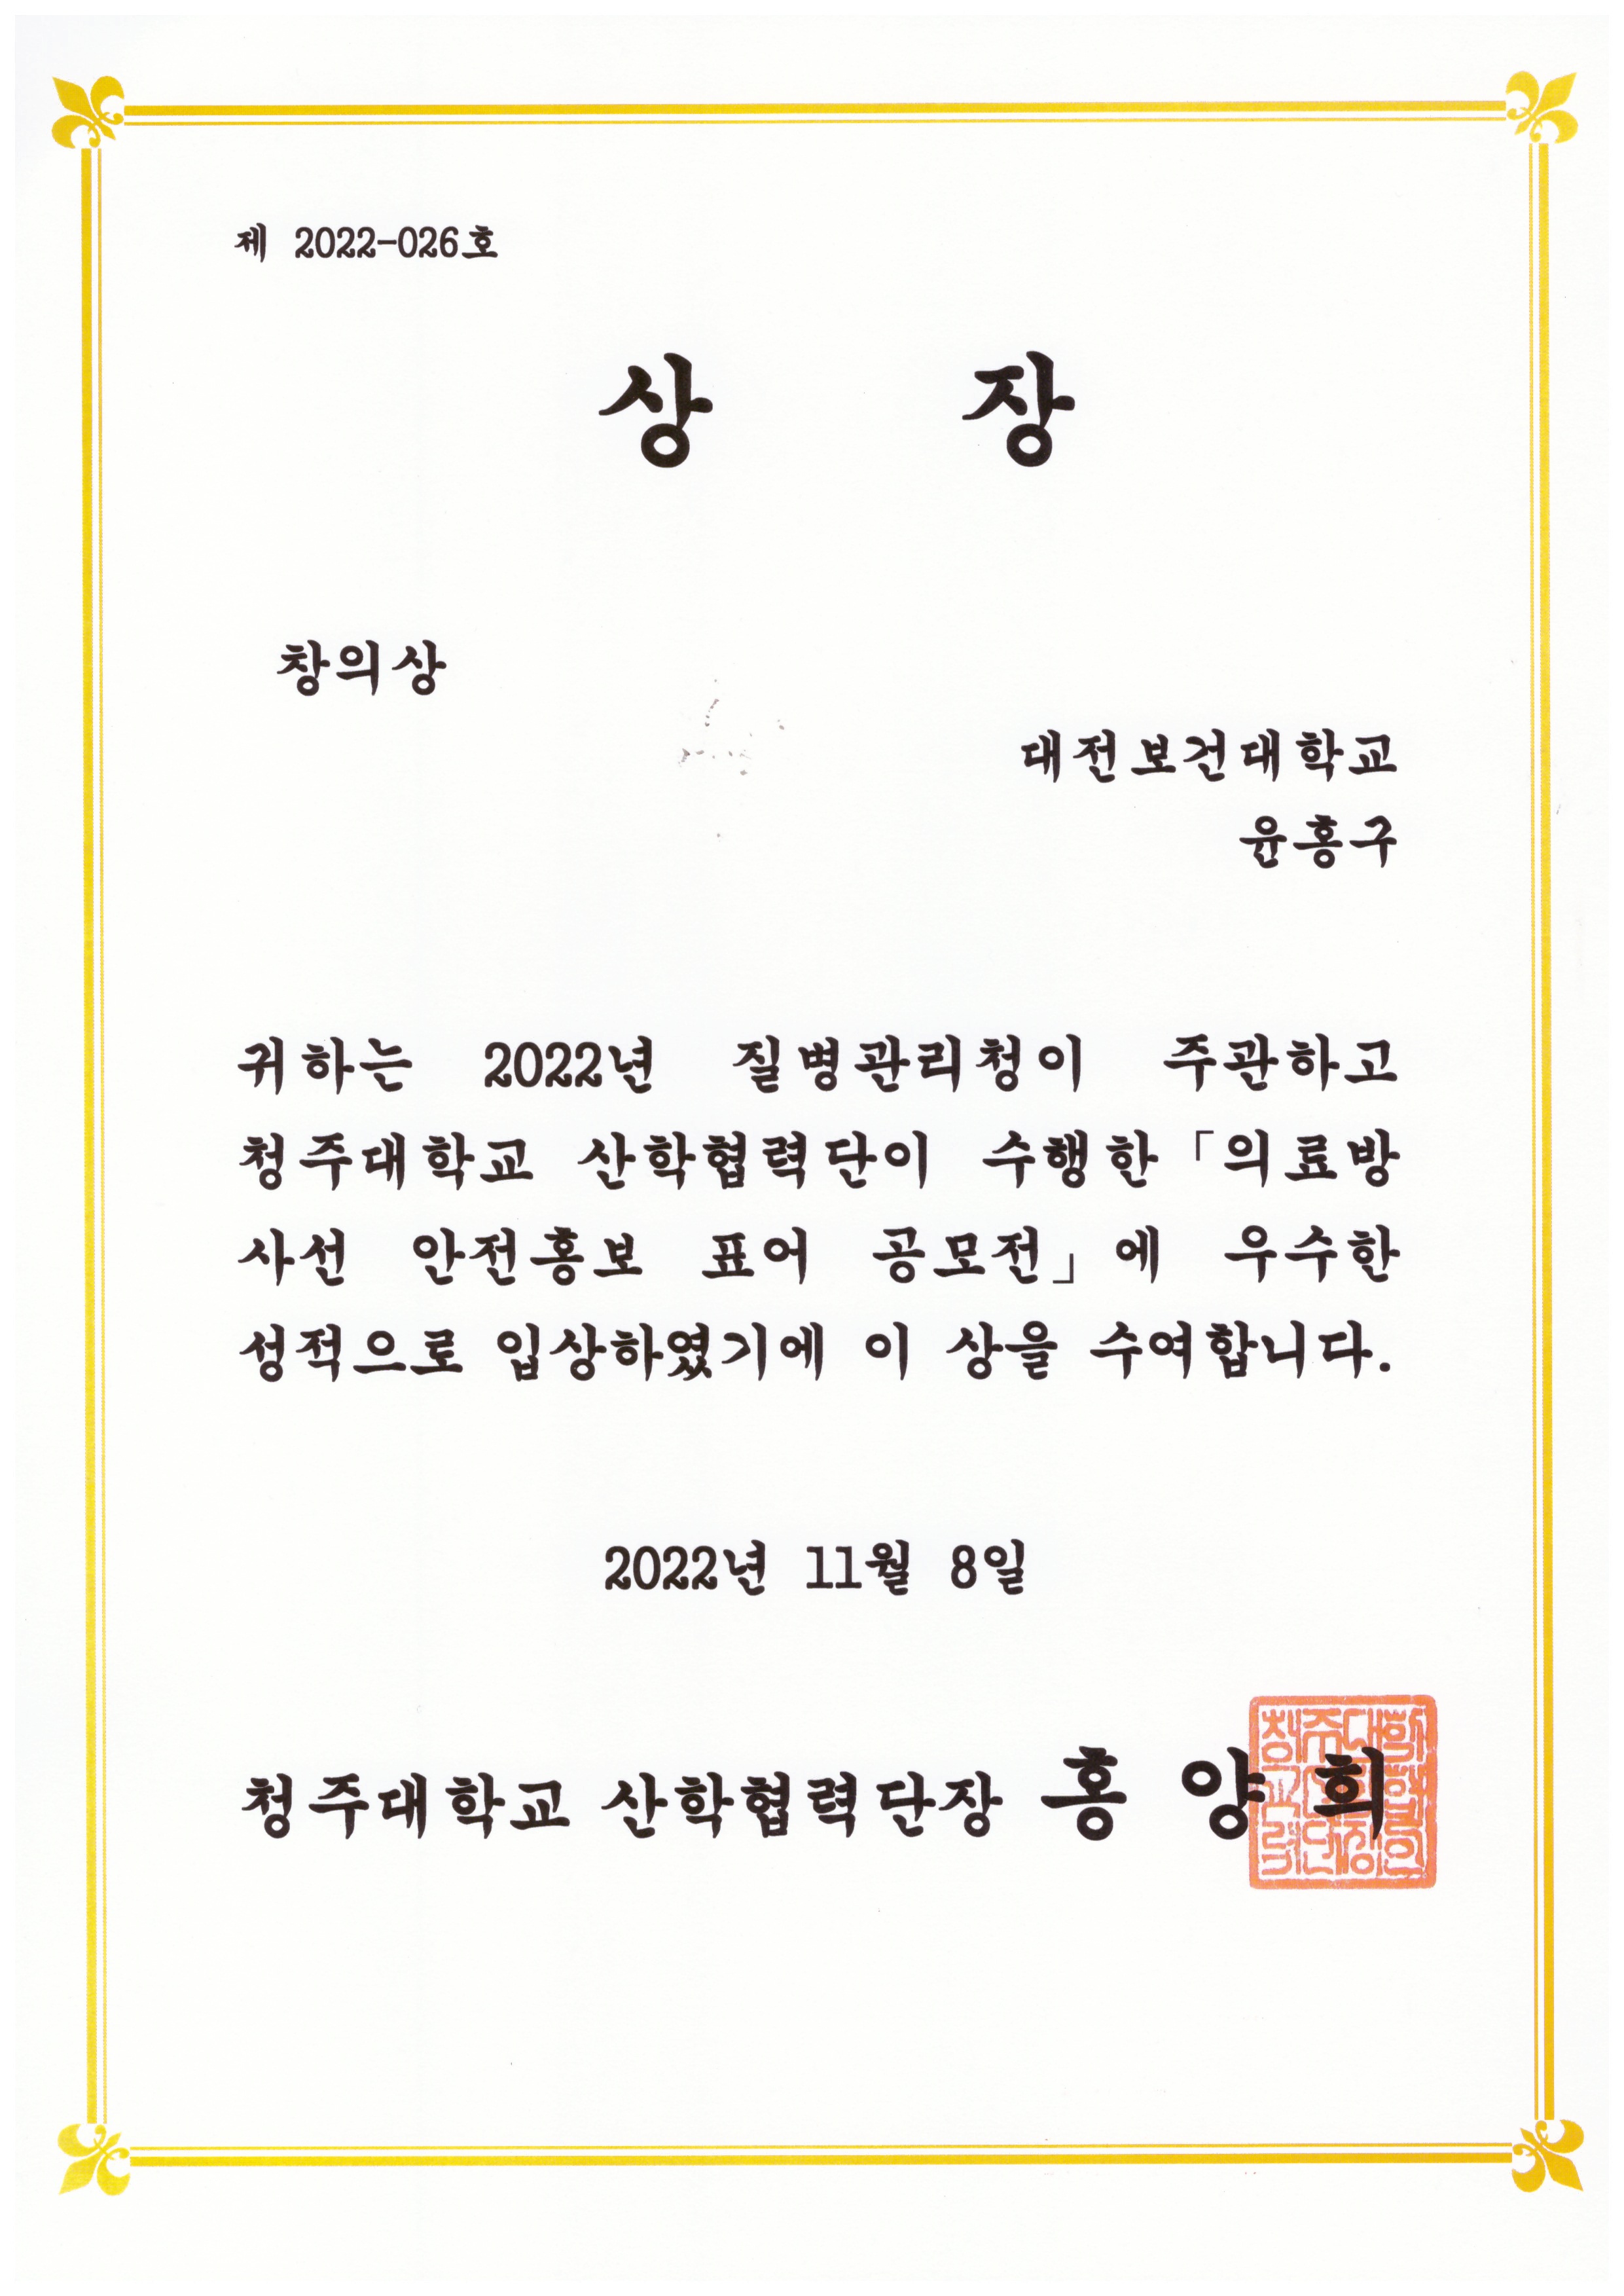 제 2022-026호
상 장
창의상
대전보건대학교
윤홍구
귀하는 2022년 질병관리청이 주관하고
청주대학교 산학협력단이 수행한「의료방
사선 안전홍보 표어 공모전」에 우수한
성적으로 입상하였기에 이 상을 수여합니다.
2022년 11월 8일
청주대학교 산학협력단장 홍 양 희